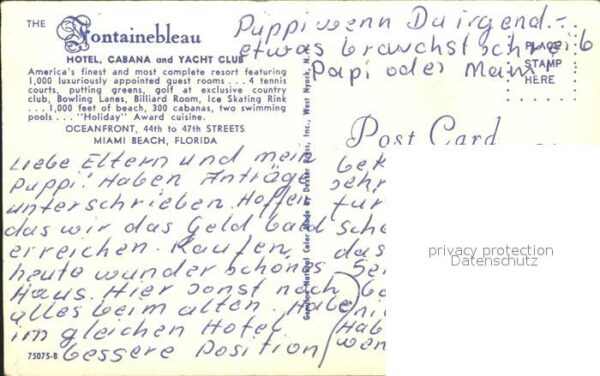 THE
Fontainebleau
HOTEL, CABANA and YACHT CLUB
America's finest and most complete resort featuring
1,000 luxuriously appointed guest rooms . . . 4 tennis
courts, putting greens, golf at exclusive country
club, Bowling Lanes, Billiard Room, Ice Skating Rink
. . . 1,000 feet of beach, 300 cabanas, two swimming
pools . . . "Holiday" Award cuisine.
OCEANFRONT, 44th to 47th STREETS
MIAMI BEACH, FLORIDA
Puppi wenn Du irgend-
etwas brauchst schreib
Papi oder Mami
PLACE
STAMP
HERE
Post Card
Liebe Eltern und mein
Puppi! Haben Anträge
unterschrieben. Hoffen
das wir das Geld bald
erreichen. Kaufen
heute wunderschönes
Haus. Hier sonst noch
alles beim alten. Habe
im gleichen Hotel
bessere Position
75075-B
Genuine Natural Color Made by Dexter Press, Inc., West Nyack, N.
bek
sehr
für
sche
das
Sei
be
ni
Hab
wen
privacy protection
Datenschutz